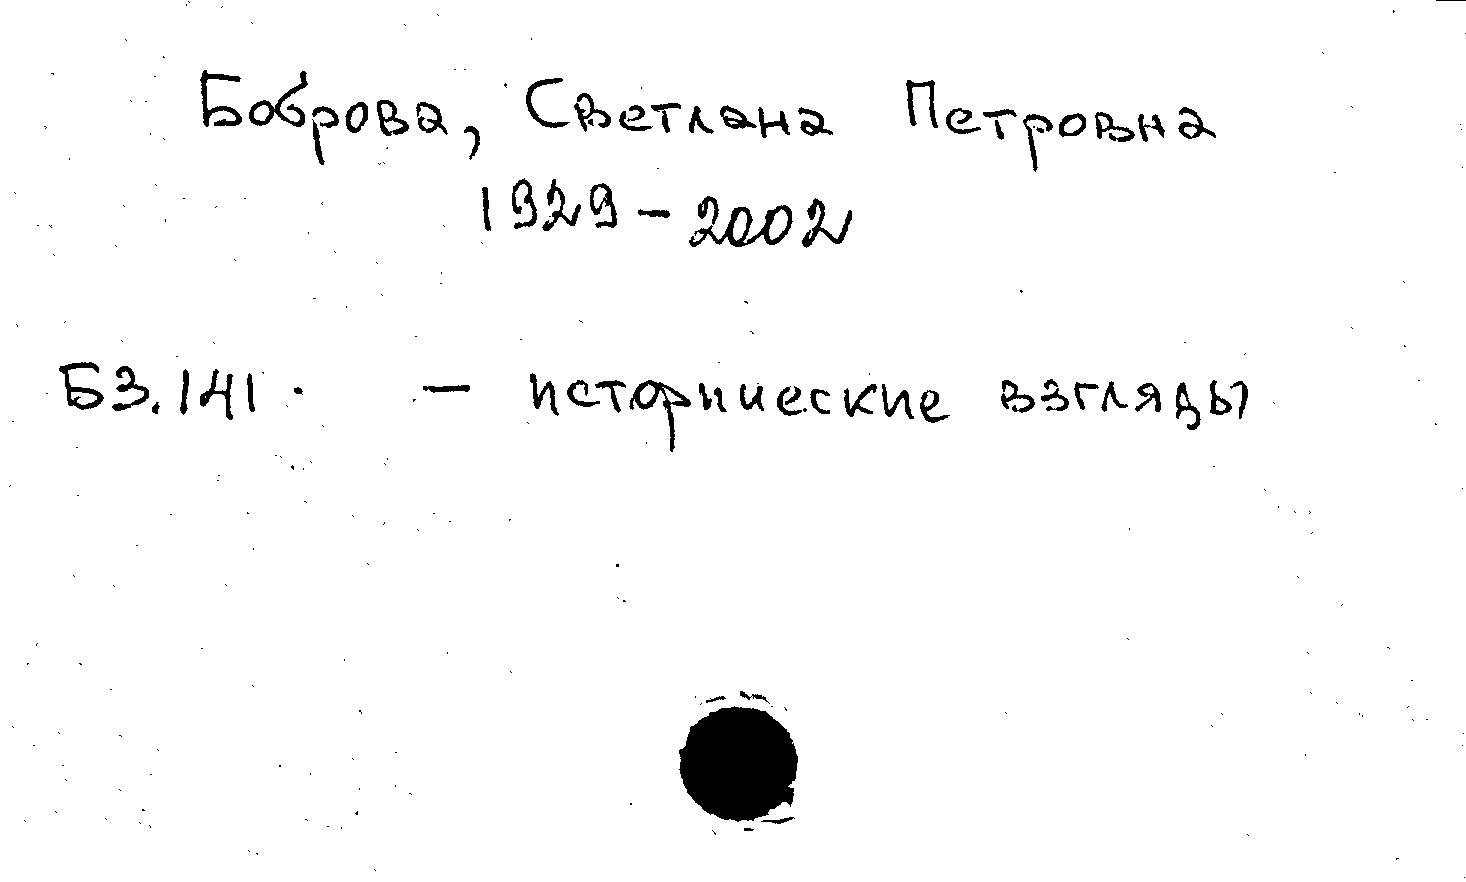 Боброва, Светлана Петровна
1929-2002
Б3.141. - исторические взгляды